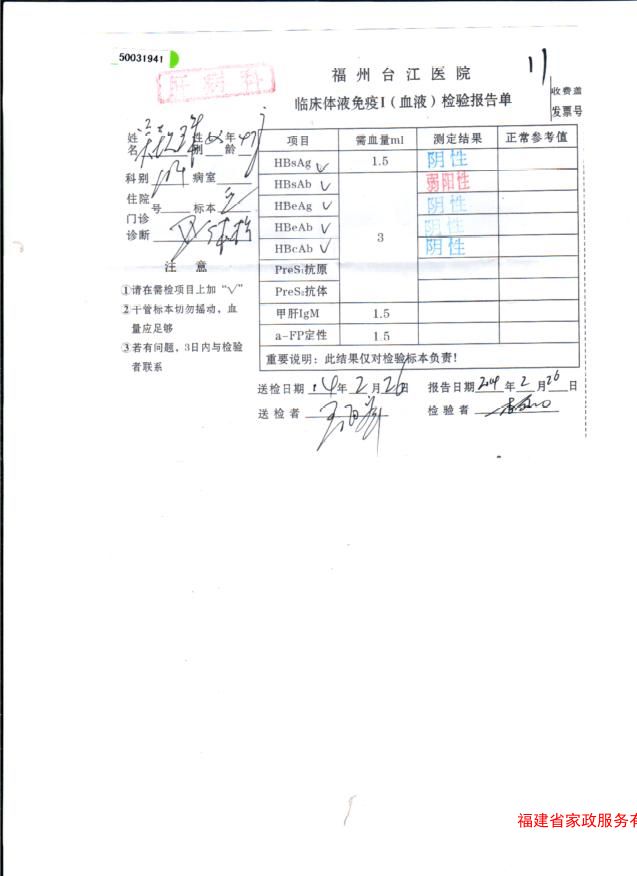 50031941
肝病科
福州台江医院
11
临床体液免疫I(血液)检验报告单
收费盖
发票号
姓名 性别 女 年龄
科别 病室
住院号 标本
门诊
诊断
注 意
①请在需检项目上加“√”
②干管标本切勿摇动，血
量应足够
③若有问题，3日内与检验
者联系
项目 需血量ml 测定结果 正常参考值
HBsAg √ 1.5 阴性
HBsAb √ 3 弱阳性
HBeAg √ 阴性
HBeAb √ 阴性
HBcAb √ 阴性
PreS₁抗原
PreS₂抗体
甲肝IgM 1.5
a-FP定性 1.5
重要说明：此结果仅对检验标本负责！
送检日期 14年2月26日 报告日期 2014年2月26日
送检者 检验者
福建省家政服务有